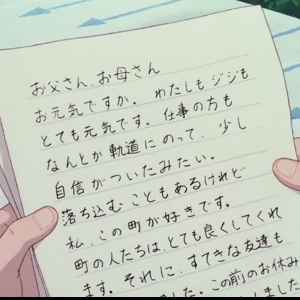 お父さん、お母さん
お元気ですか。わたしもジジも
とても元気です。仕事の方も
なんとか軌道にのって、少し
自信がついたみたい。
落ち込むこともあるけれど
私、この町が好きです。
町の人たちは、とても良くしてくれ
ます。それに、すてきな友達も
ました。この前のお休み
しました